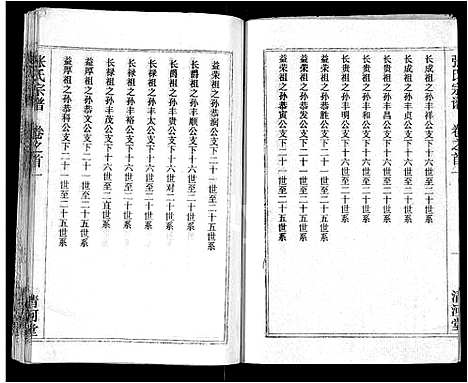 张氏宗谱 卷之首一
长成祖之孙丰祥公支下十六世至二十世系
长成祖之孙丰贞公支下十六世至二十世系
长成祖之孙丰昌公支下十六世至二十世系
长成祖之孙丰明公支下十六世至二十世系
益荣祖之孙恭胜公支下二十一世至二十五世系
益荣祖之孙恭发公支下二十一世至二十五世系
益荣祖之孙恭寅公支下二十一世至二十五世系
清河堂
益荣祖之孙恭 公支下二十一世至二十五世系
长爵祖之孙丰顺公支下十六世至二十世系
长爵祖之孙丰 公支下十六世对二十世系
长禄祖之孙丰太公支下十六世至二十世系
长禄祖之孙丰裕公支下十六世至二十世系
长禄祖之孙丰茂公支下十六世至二十世系
益厚祖之孙恭科公支下二十一世至二十五世系
益厚祖之孙恭 公支下二十一世至二十五世系
张氏宗谱 卷之首一
清河堂